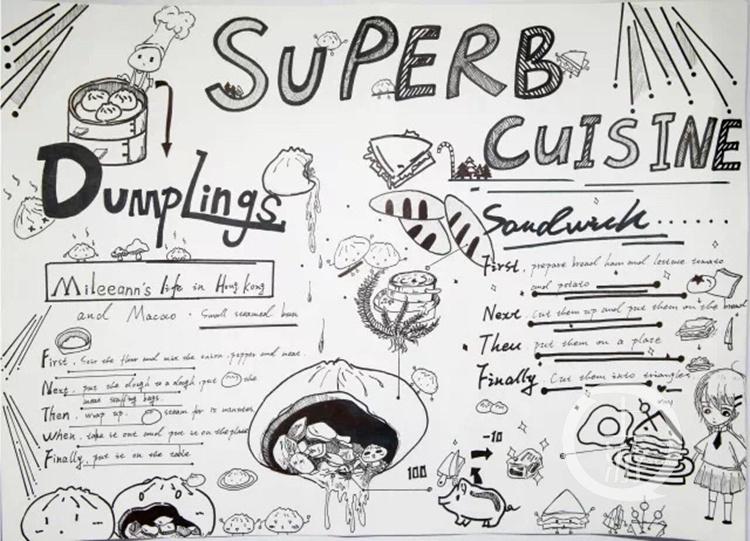 SUPERB
CUISINE
Dumplings
Mileeann's life in Hong Kong
and Macao · Small steamed bun
First, Sow the flour and mix the onion, pepper and meat.
Next, put the dough to a dough, put the
meat bags.
Then, wrap up. steam for 15 minutes
When, take it out and put it on the place
Finally, put it on the table
Sandwich......
First, prepare bread ham and lettuce tomato
and potato
Next, cut them up and put them on the bread
Then, put them on a plate
Finally, Cut them into triangles
100
-10